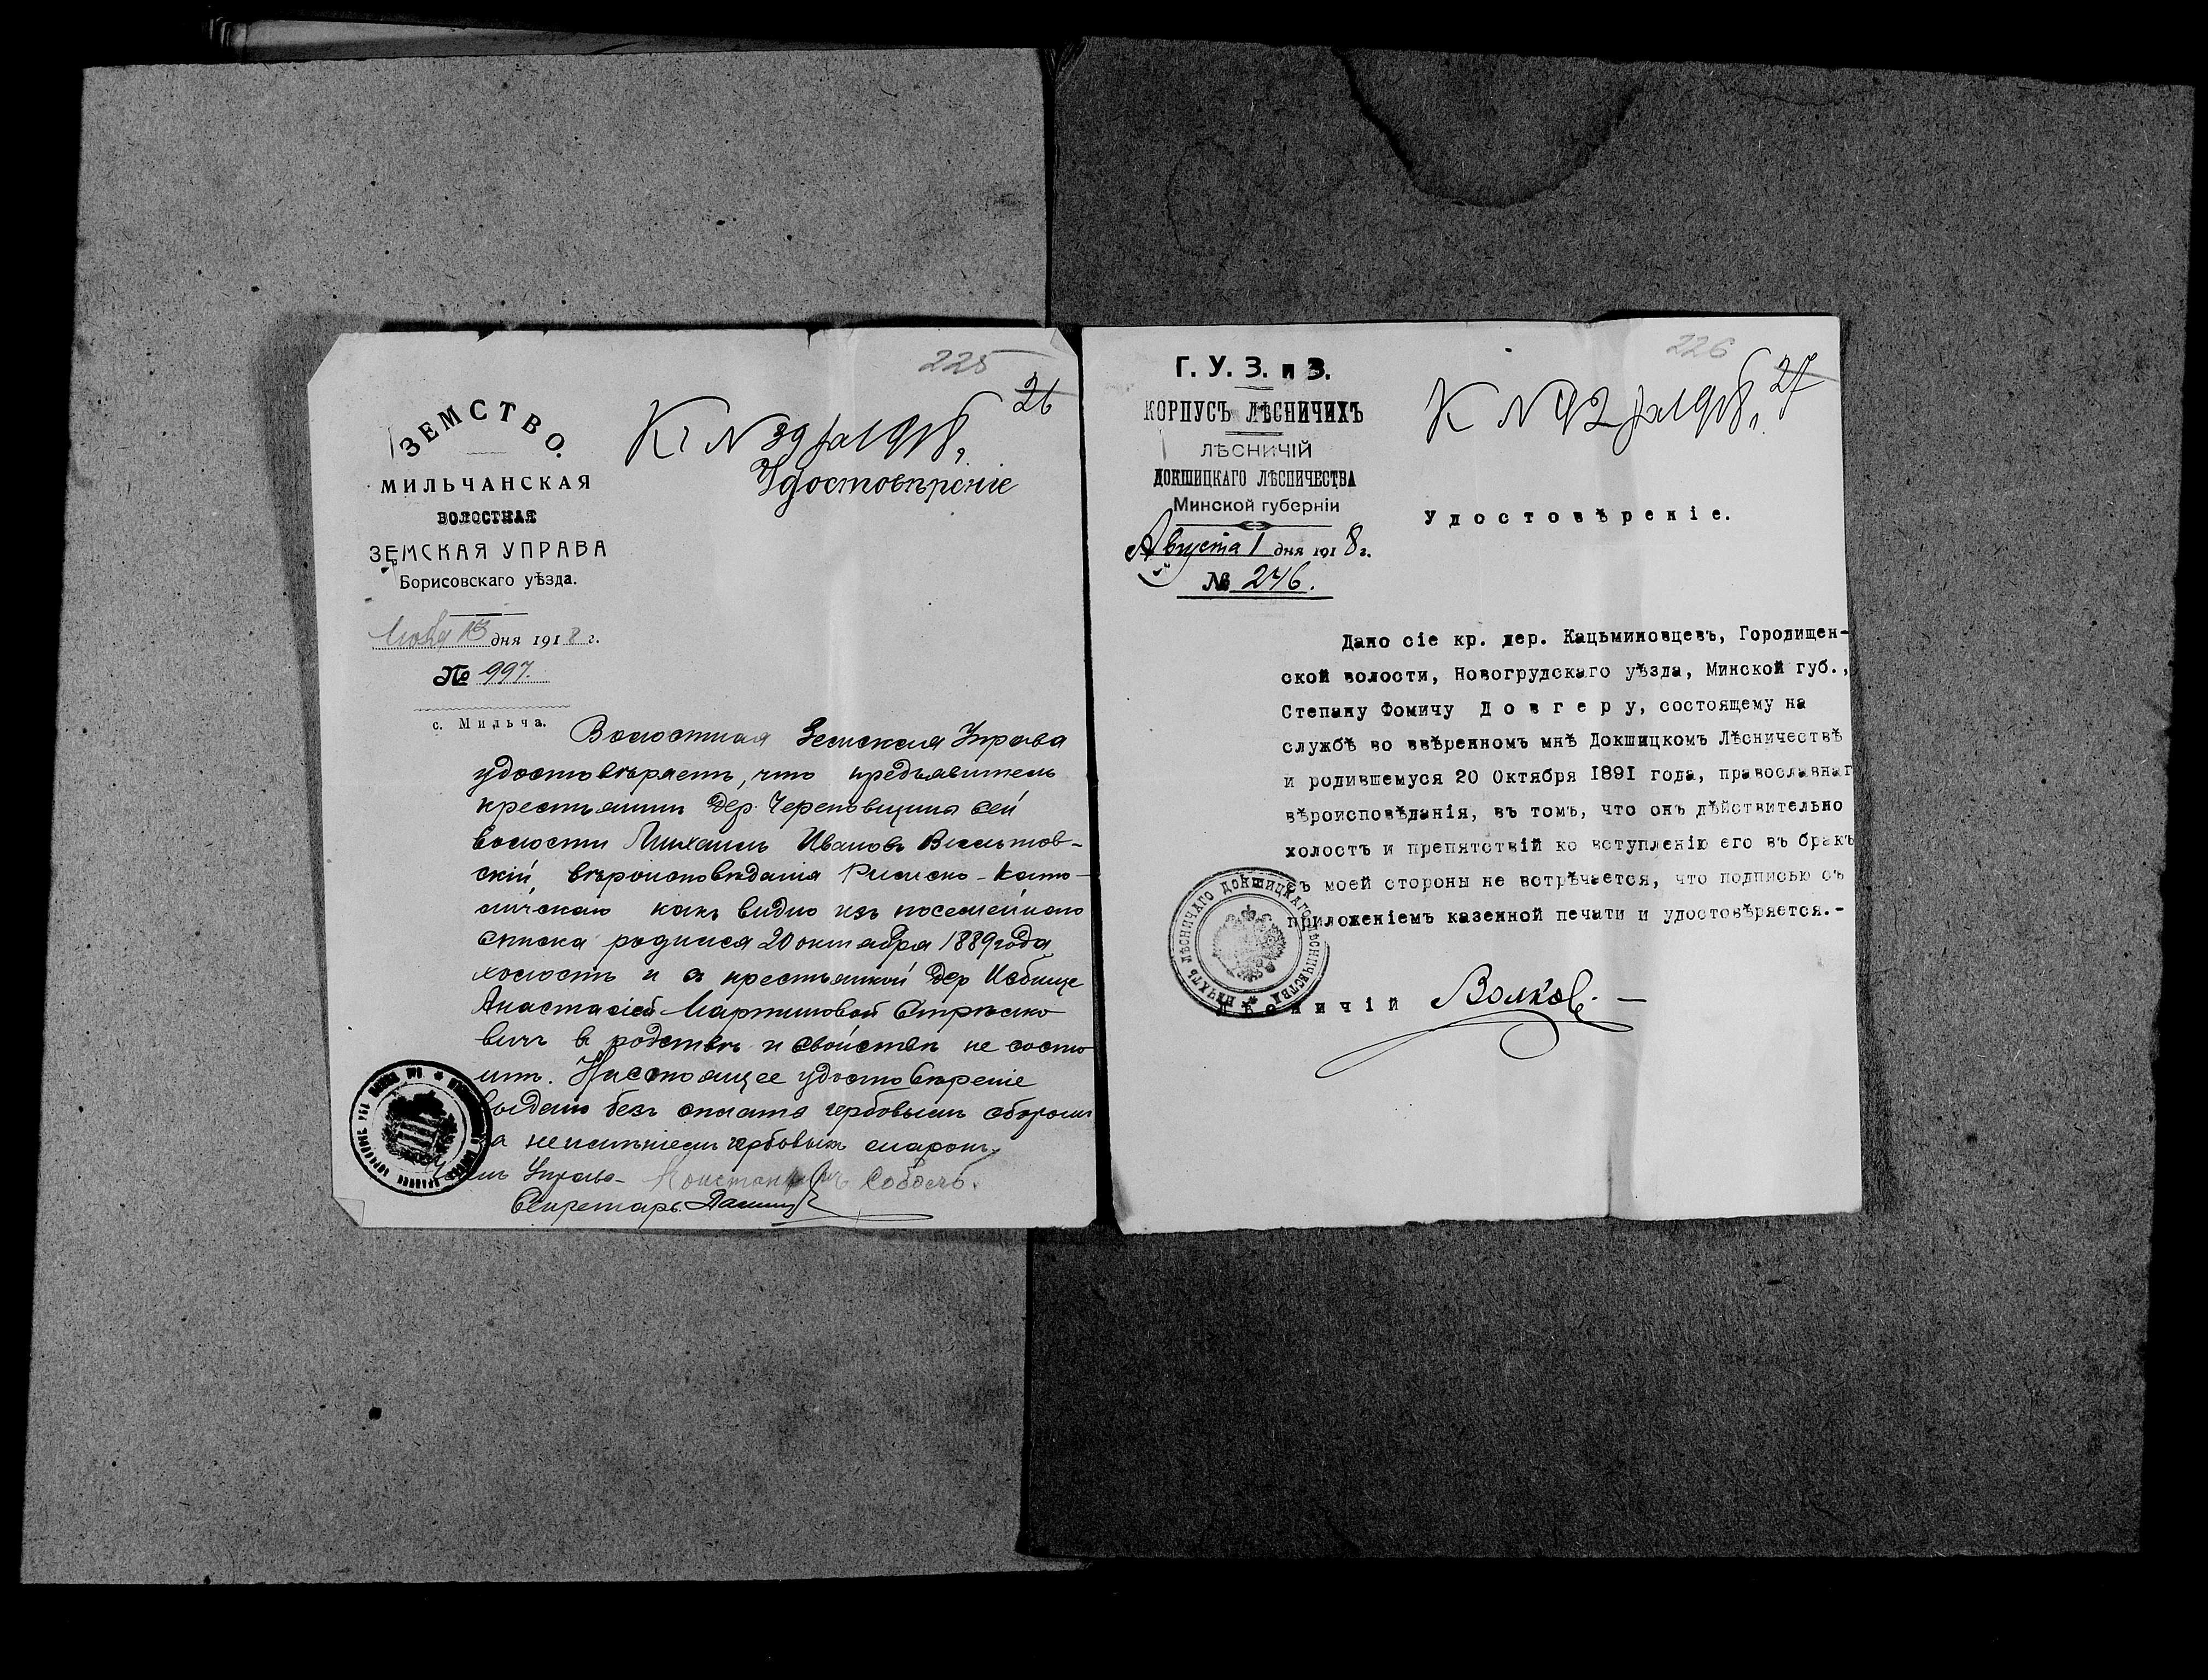 225
26
ЗЕМСТВО.
МИЛЬЧАНСКАЯ
ВОЛОСТНАЯ
ЗЕМСКАЯ УПРАВА
Борисовскаго уѣзда.
13 дня 1918 г.
№ 997.
с. Мильча.
К N 39 за 1918 г.
Удостовѣреніе
Волостная Земская Управа
удостовѣряетъ, что предъявитель
крестьянинъ дер. Череповщина сей
волости Михаилъ Ивановъ
скій, вѣроисповѣданія Римско-Като-
личскаго какъ видно изъ посемейнаго
списка родился 20 октября 1889 года
холостъ и съ крестьянкой дер
Анастасіей Мартиновой Стрѣлко
вичъ въ родствѣ и свойствѣ не состо
итъ. Настоящее удостовѣреніе
выдано безъ оплаты гербовымъ сборомъ
за неимѣніемъ гербовыхъ марокъ.
Управы Соболь.
Секретарь
226
27
Г. У. З. и З.
КОРПУСЪ ЛѢСНИЧИХЪ
ЛѢСНИЧІЙ
ДОКШИЦКАГО ЛѢСНИЧЕСТВА
Минской губерніи
Августа 1 дня 1918 г.
№ 246.
К N 42 за 1918 г.
Удостовѣреніе.
Дано сіе кр. дер. Кацьминовцевъ, Городищен-
ской волости, Новогрудскаго уѣзда, Минской губ.,
Степану Фомичу Довгеру, состоящему на
службѣ во ввѣренномъ мнѣ Докшицкомъ Лѣсничествѣ
и родившемуся 20 Октября 1891 года, православнаг
вѣроисповѣданія, въ томъ, что онъ дѣйствительно
холостъ и препятствій ко вступленію его въ бракъ
съ моей стороны не встрѣчается, что подписью съ
приложеніемъ казенной печати и удостовѣряется.-
ПЕЧАТЬ ЛѢСНИЧАГО ДОКШИЦКАГО ЛѢСНИЧЕСТВА
Лѣсничій Волковъ. —